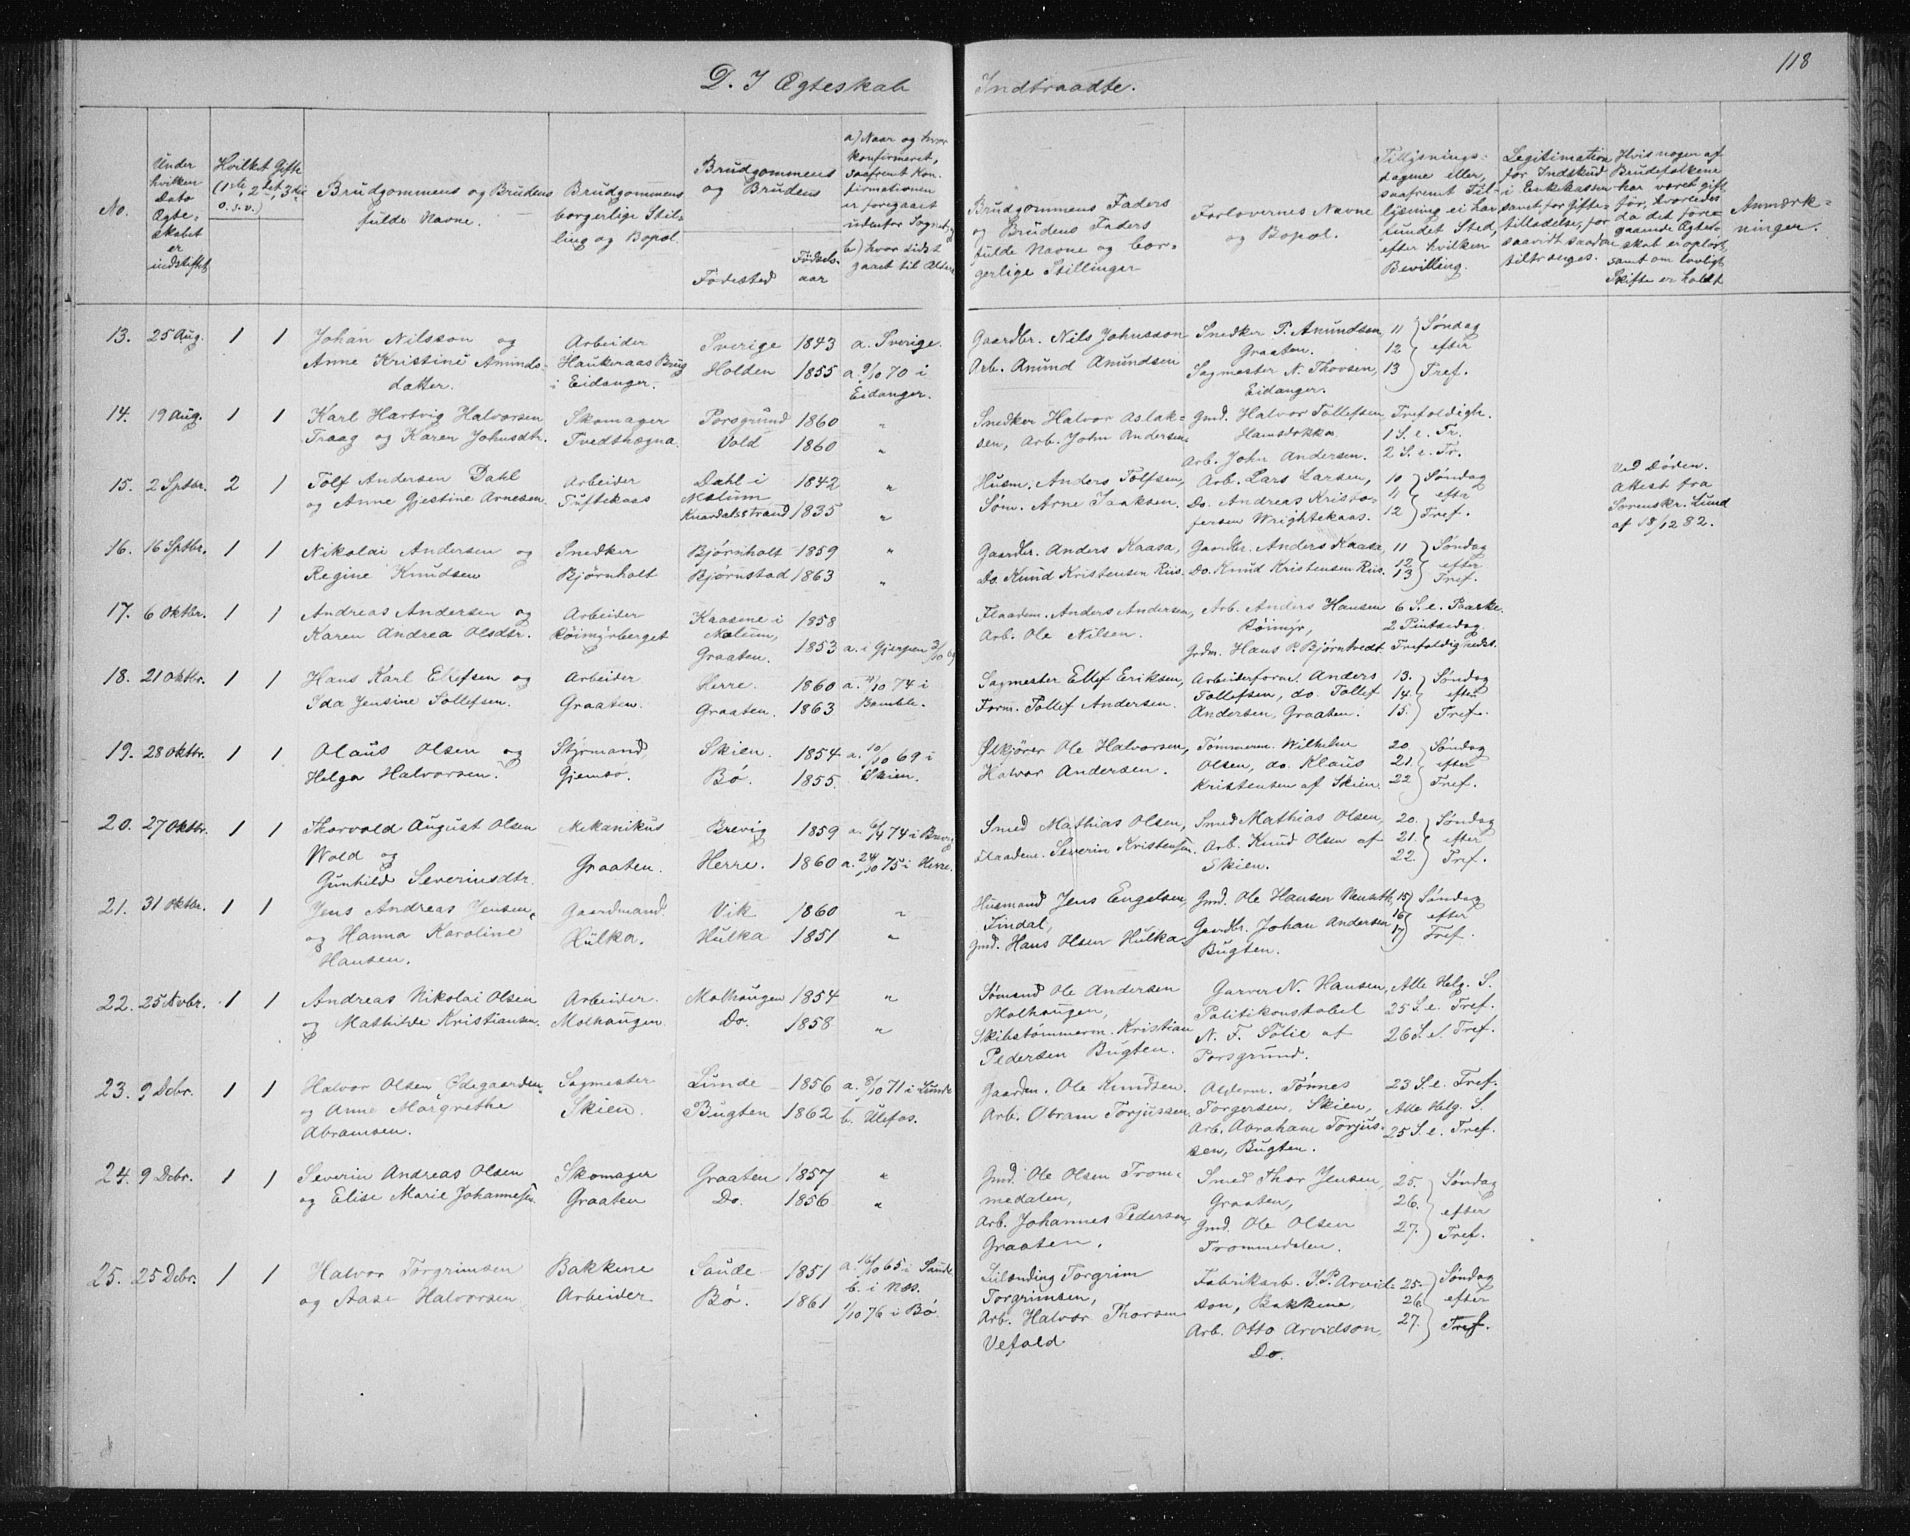 118
D. I Ægteskab Indtraadte.
No.
Under hvilken Dato Ægteskabet er indstiftet
Hvilket Gifte (1ste, 2det, 3die o.s.v.)
Brudgommens og Brudens fulde Navne.
Brudgommens borgerlige Stilling og Bopæl.
Brudgommens og Brudens
Fødested
Fødselsaar
a) Naar og hvor konfirmeret, saafremt Konfirmationen er foregaaet udenfor Sognet,
b) hvor sidst gaaet til Alters
Brudgommens Faders og Brudens Faders fulde Navne og borgerlige Stillinger
Forlovernes Navne og Bopæl.
Tillysningsdagene eller, saafremt Tillysning ei har fundet Sted, efter hvilken Bevilling.
Legitimation for Indskud i Enkekassen samt for Giftetilladelse, for saavidt saadan tiltrænges.
Hvis nogen af Brudefolkene har været gift før, hvorledes da det foregaaende Ægteskab er opløst samt om lovligt Skifte er holdt
Anmærkninger.
13. 25 Aug. 1 1 Johan Nilsson og Arbeider Sverige 1843 a. Sverige. Gaardbr. Nils Johnsson Snedker P. Amundsen, 11 Søndag
Anne Kristine Amundsdatter. Haukeraas Brug i Eidanger. Holden 1855 a. 9/10 70 i Eidanger. Arb. Amund Amundsen Graaten. 12 efter
Sagmester N. Thovsen, Eidanger. 13 Tref.
14. 19 Aug. 1 1 Karl Hartvig Halvorsen Skomager Porsgrund 1860 " Snedker Halvor Aslaksen, Gmd. Halvor Tollefsen Trefoldigh.
Traag og Karen Johnsdtr. Tvedthægna. Vold 1860 " Arb. John Andersen. 1 S. e. Tr.
Arb. John Andersen. 2 S. e. Tr.
15. 2 Sptbr. 2 1 Tolf Andersen Dahl Arbeider Dahl i Mælum 1842 " Husm. Anders Tolfsen, Arb. Lars Larsen, 10 Søndag Ved Døden.
og Anne Gjestine Arnesen. Tuftekaas Knardalsstrand 1835 " Søm. Arne Isaksen. Do. Andreas Kristofersen Wrightekaas. 11 efter Attest fra
12 Tref. Sorenskr. Lund
af 18/12 82.
16. 16 Sptbr. 1 1 Nikolai Andersen og Snedker Bjørnholt 1859 " Gaardbr. Anders Kaasa, Gaardbr. Anders Kaasa, 11 Søndag
Regine Knudsen Bjørnholt Bjørnstad 1863 " Do. Knud Kristensen Riis. Do. Knud Kristensen Riis. 12 efter
13 Tref.
17. 6 Oktbr. 1 1 Andreas Andersen og Arbeider Kaasene i Mælum, 1858 Flaadem. Anders Andersen, Arb. Anders Hansen 6 S. e. Paaske.
Karen Andrea Olsdtr. Røimyrberget Graaten. 1853 a. i Gjerpen 3/10 69 Arb. Ole Nilsen. Røimyr, 2 Pintsedag.
Grdm. Hans P. Bjørntvedt Trefoldighedss.
18. 21 Oktbr. 1 1 Hans Karl Ellefsen og Arbeider Herre. 1860 a. 4/10 74 i Bamble. Sagmester Ellef Eriksen, Arbeiderform. Anders 13. Søndag
Ida Jensine Tollefsen. Graaten. Graaten. 1863 Form. Tollef Andersen. Tollefsen, do. Tollef 14. efter
Andersen, Graaten. 15. Tref.
19. 28 Oktbr. 1 1 Olaus Olsen og Styrmand, Skien. 1854 a. 10/10 69 i Skien. Ølkjører Ole Halvorsen, Tømmerm. Wilhelm 20. Søndag
Helga Halvorsen. Gjemsø. Bø. 1855. Halvor Andersen. Olsen, do. Klaus 21. efter
Kristensen af Skien. 22 Tref.
20. 27 Oktbr. 1 1 Thorvald August Olsen Mekanikus Brevig 1859 a. 6/4 74 i Brevig Smed Mathias Olsen, Smed Mathias Olsen, 20. Søndag
Wold og Graaten. Herre. 1860 a. 24/10 75 i Herre. Flaadem. Severin Kristensen. Arb. Knud Olsen af 21. efter
Gunhild Severinsdtr. Skien. 22. Tref.
21. 31 Oktbr. 1 1 Jens Andreas Jensen Gaardmand. Vik 1860 " Husmand Jens Engelsen, Gmd. Ole Hansen 15 Søndag
og Hanna Karoline Hulka. Hulka 1851 " Findal, Gaardbr. Johan Andersen 16 efter
Hansen. Gmd. Hans Olsen Hulka. Bugten. 17 Tref.
22. 25 Nvbr. 1 1 Andreas Nikolai Olsen Arbeider. Molhaugen 1854 " Sømand Ole Andersen Garver N. Hansen, Alle Helg. S.
og Mathilde Kristiansen. Molhaugen Do. 1858 " Molhaugen, Politikonstabel 25 S. e. Tref.
Skibstømmerm. Kristian N. F. Tolie af 26 S. e. Tref.
Pedersen Bugten. Porsgrund.
23. 9 Dcbr. 1 1 Halvor Olsen Ødegaarden Sagmester Lunde 1856 a. 8/10 71 i Lunde Gaardm. Ole Knudsen. Olderm. Tønnes 23 S. e. Tref.
og Anne Margrethe Skien. Bugten 1862 b. Ulefos. Arb. Abram Torjussen. Torgersen, Skien, Alle Helg. S.
Abramsen. Arb. Abraham Torjussen, Bugten. 25 S. e. Tref.
24. 9 Dcbr. 1 1 Severin Andreas Olsen Skomager Graaten 1857 " Gmd. Ole Olsen Trommedalen, Smed Thor Jensen, 25. Søndag
og Elise Marie Johannesen. Graaten Do. 1856 " Arb. Johannes Pedersen, Graaten, 26. efter
Graaten. Gmd. Ole Olsen Trommedalen. 27. Tref.
25. 25 Dcbr. 1 1 Halvor Torgrimsen Bakkene Saude 1851 a. 16/10 65 i Saude Leilænding Torgrim Fabrikarb. J. P. Arvidson, Bakkene, 25. Søndag
og Aase Halvorsen Arbeider Bø. 1861 b. i Næs. Torgrimsen, 26. efter
1/10 76 i Bø Arb. Halvor Thorsen Arb. Otto Arvidson, 27. Tref.
Vefald Do.